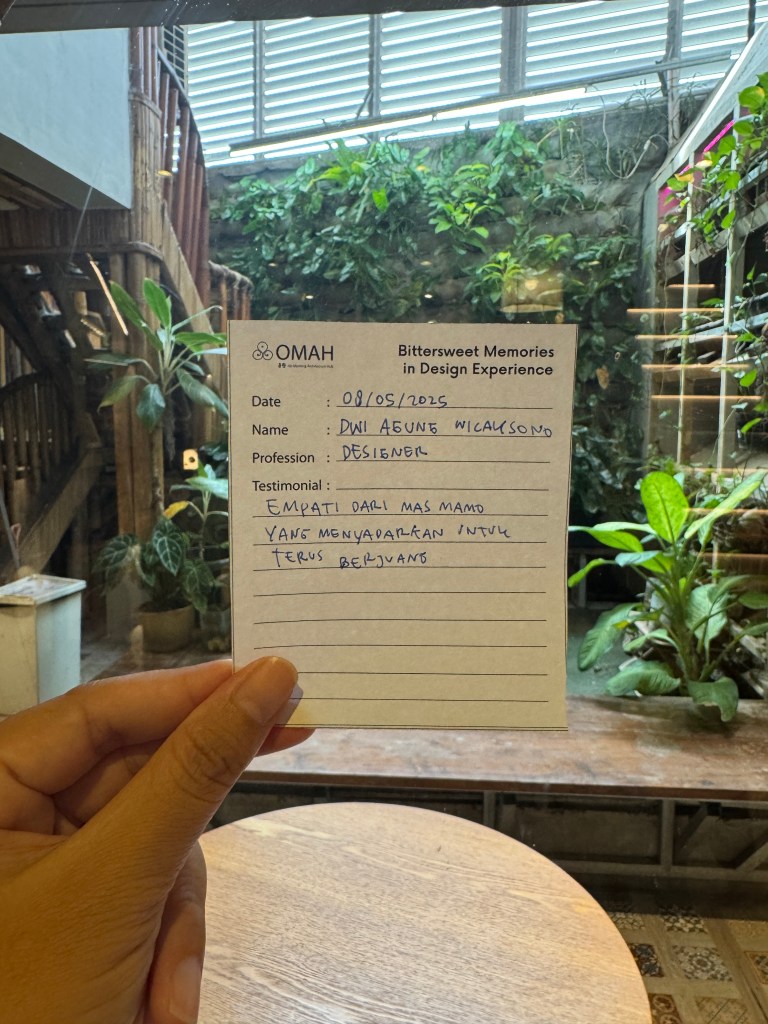 OMAH
Bittersweet Memories
in Design Experience
Date : 08/05/2025
Name : DWI AGUNG WICAKSONO
Profession : DESIGNER
Testimonial :
EMPATI DARI MAS MAMO
YANG MENYADARKAN UNTUK
TERUS BERJUANG